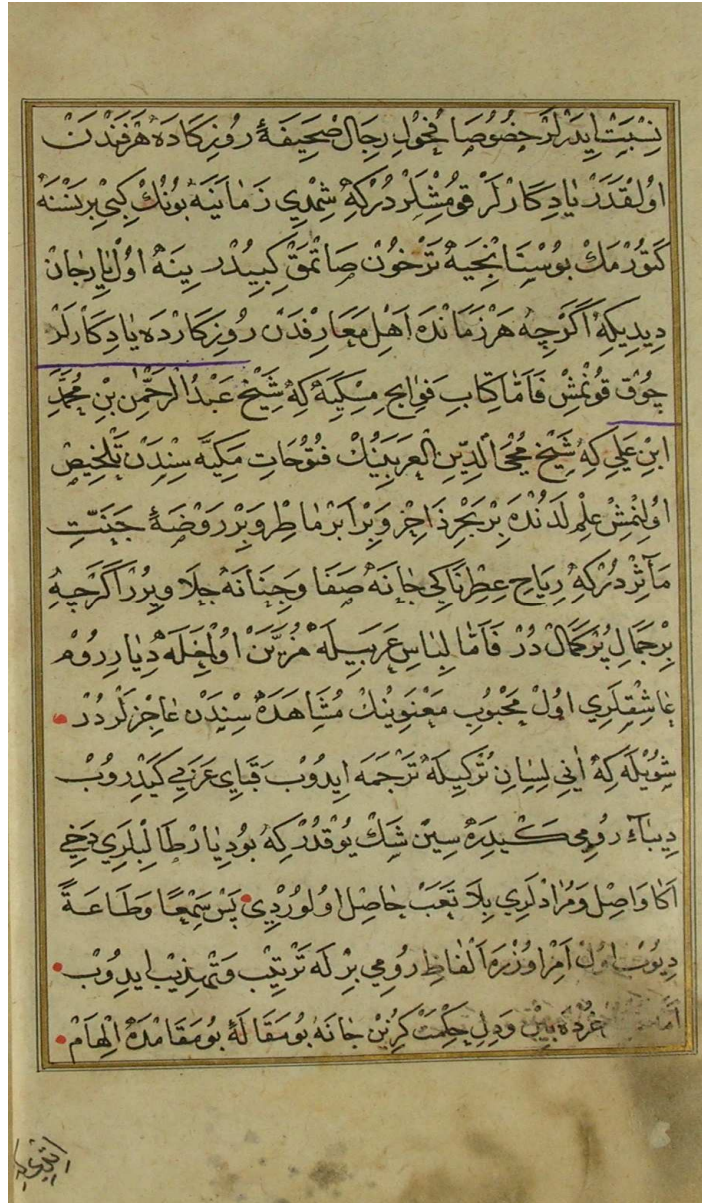 نِسْبَتْ اِيدَرْلَرْ خُصُوصًا فُحُولِ رِجَالِ صَحِيفَۀِ رُوزِكَارَدَه هَرْ فَنْدَنْ
اُولْقَدَرْ يَادِكَارْلَرْ قُومُشْلَرْدُرْكِهْ شِمْدِي زَمَانَيَه بُونُكْ كِبِي بِرْنَسْنَه
كَتُورْمَكْ بُوسْتَانْجِيَه تَرْخُونْ صَاتْمَقْ كِبِيدُرْ يِنَه اُولْ يَارِ جَانْ
دِيدِيكِه اَكَرْچِه هَرْ زَمَانْدَه اَهْلِ مَعَارِفْدَنْ رُوزِكَارْدَه يَادِكَارْلَرْ
چُوقْ قُونْمِشْ فَاَمَّا كِتَابِ فَوَايِحِ مِسْكِيَّه كِه شَيْخْ عَبْدُ الرَّحْمٰنِ بْنِ مُحَمَّدِ
ابْنِ عَلِي كِه شَيْخْ مُحْيِي الدِّينِ الْعَرَبِينُكْ فُتُوحَاتِ مَكِّيَّه سِنْدَنْ تَلْخِيصْ
اُولِنْمِشْ عِلْمِ لَدُنْدَه بِرْ بَحْرِ ذَاخِرْ وَبِرْ اَبْرِ مَاطِرْ وَبِرْ رَوْضَۀِ جَنَّتْ
مَآثِرْدُرْكِه رِيَاحِ عِطْرِنَاكِي جَانَه صَفَا وَجِنَانَه جِلَا وِيرُرْ اَكَرْچِه
بِرْ جَمَالِ پُرْ كَمَالْ دُرْ فَاَمَّا لِبَاسِ عَرَبِيلَه مُزَيَّنْ اُولْمَغِلَه دِيَارِ رُومْ
عَاشِقْلَرِي اُولْ مَحْبُوبِ مَعْنَوِينُكْ مُشَاهَدَه سِنْدَنْ عَاجِزْلَرْدُرْ
شُويْلَه كِه اَنِي لِسَانِ تُرْكِيلَه تَرْجَمَه اِيدُوبْ قَبَايِ عَرَبِي كَيْدِرُوبْ
دِيبَاءِ رُومِي كَيْدِرَه سِينْ شَكْ يُوقْدُرْكِه بُو دِيَارْ طَالِبْلَرِي دَخِي
اَكَا وَاصِلْ وَمُرَادْلَرِي بِلَا تَعَبْ حَاصِلْ اُولُورْدِي پَسْ سَمْعًا وَطَاعَةً
دِيُوبْ اُولْ اَمْرْ اُوزْرَه اَلْفَاظِ رُومِي بِرْلَه تَرْتِيبْ وَتَهْذِيبْ اِيدُوبْ
خُرْدَه بِينْ وَدِلِ حِكْمَتْ كُزِينْ جَانَه بُو مَقَالَه بُو مَقَامْدَه اِلْهَامْ